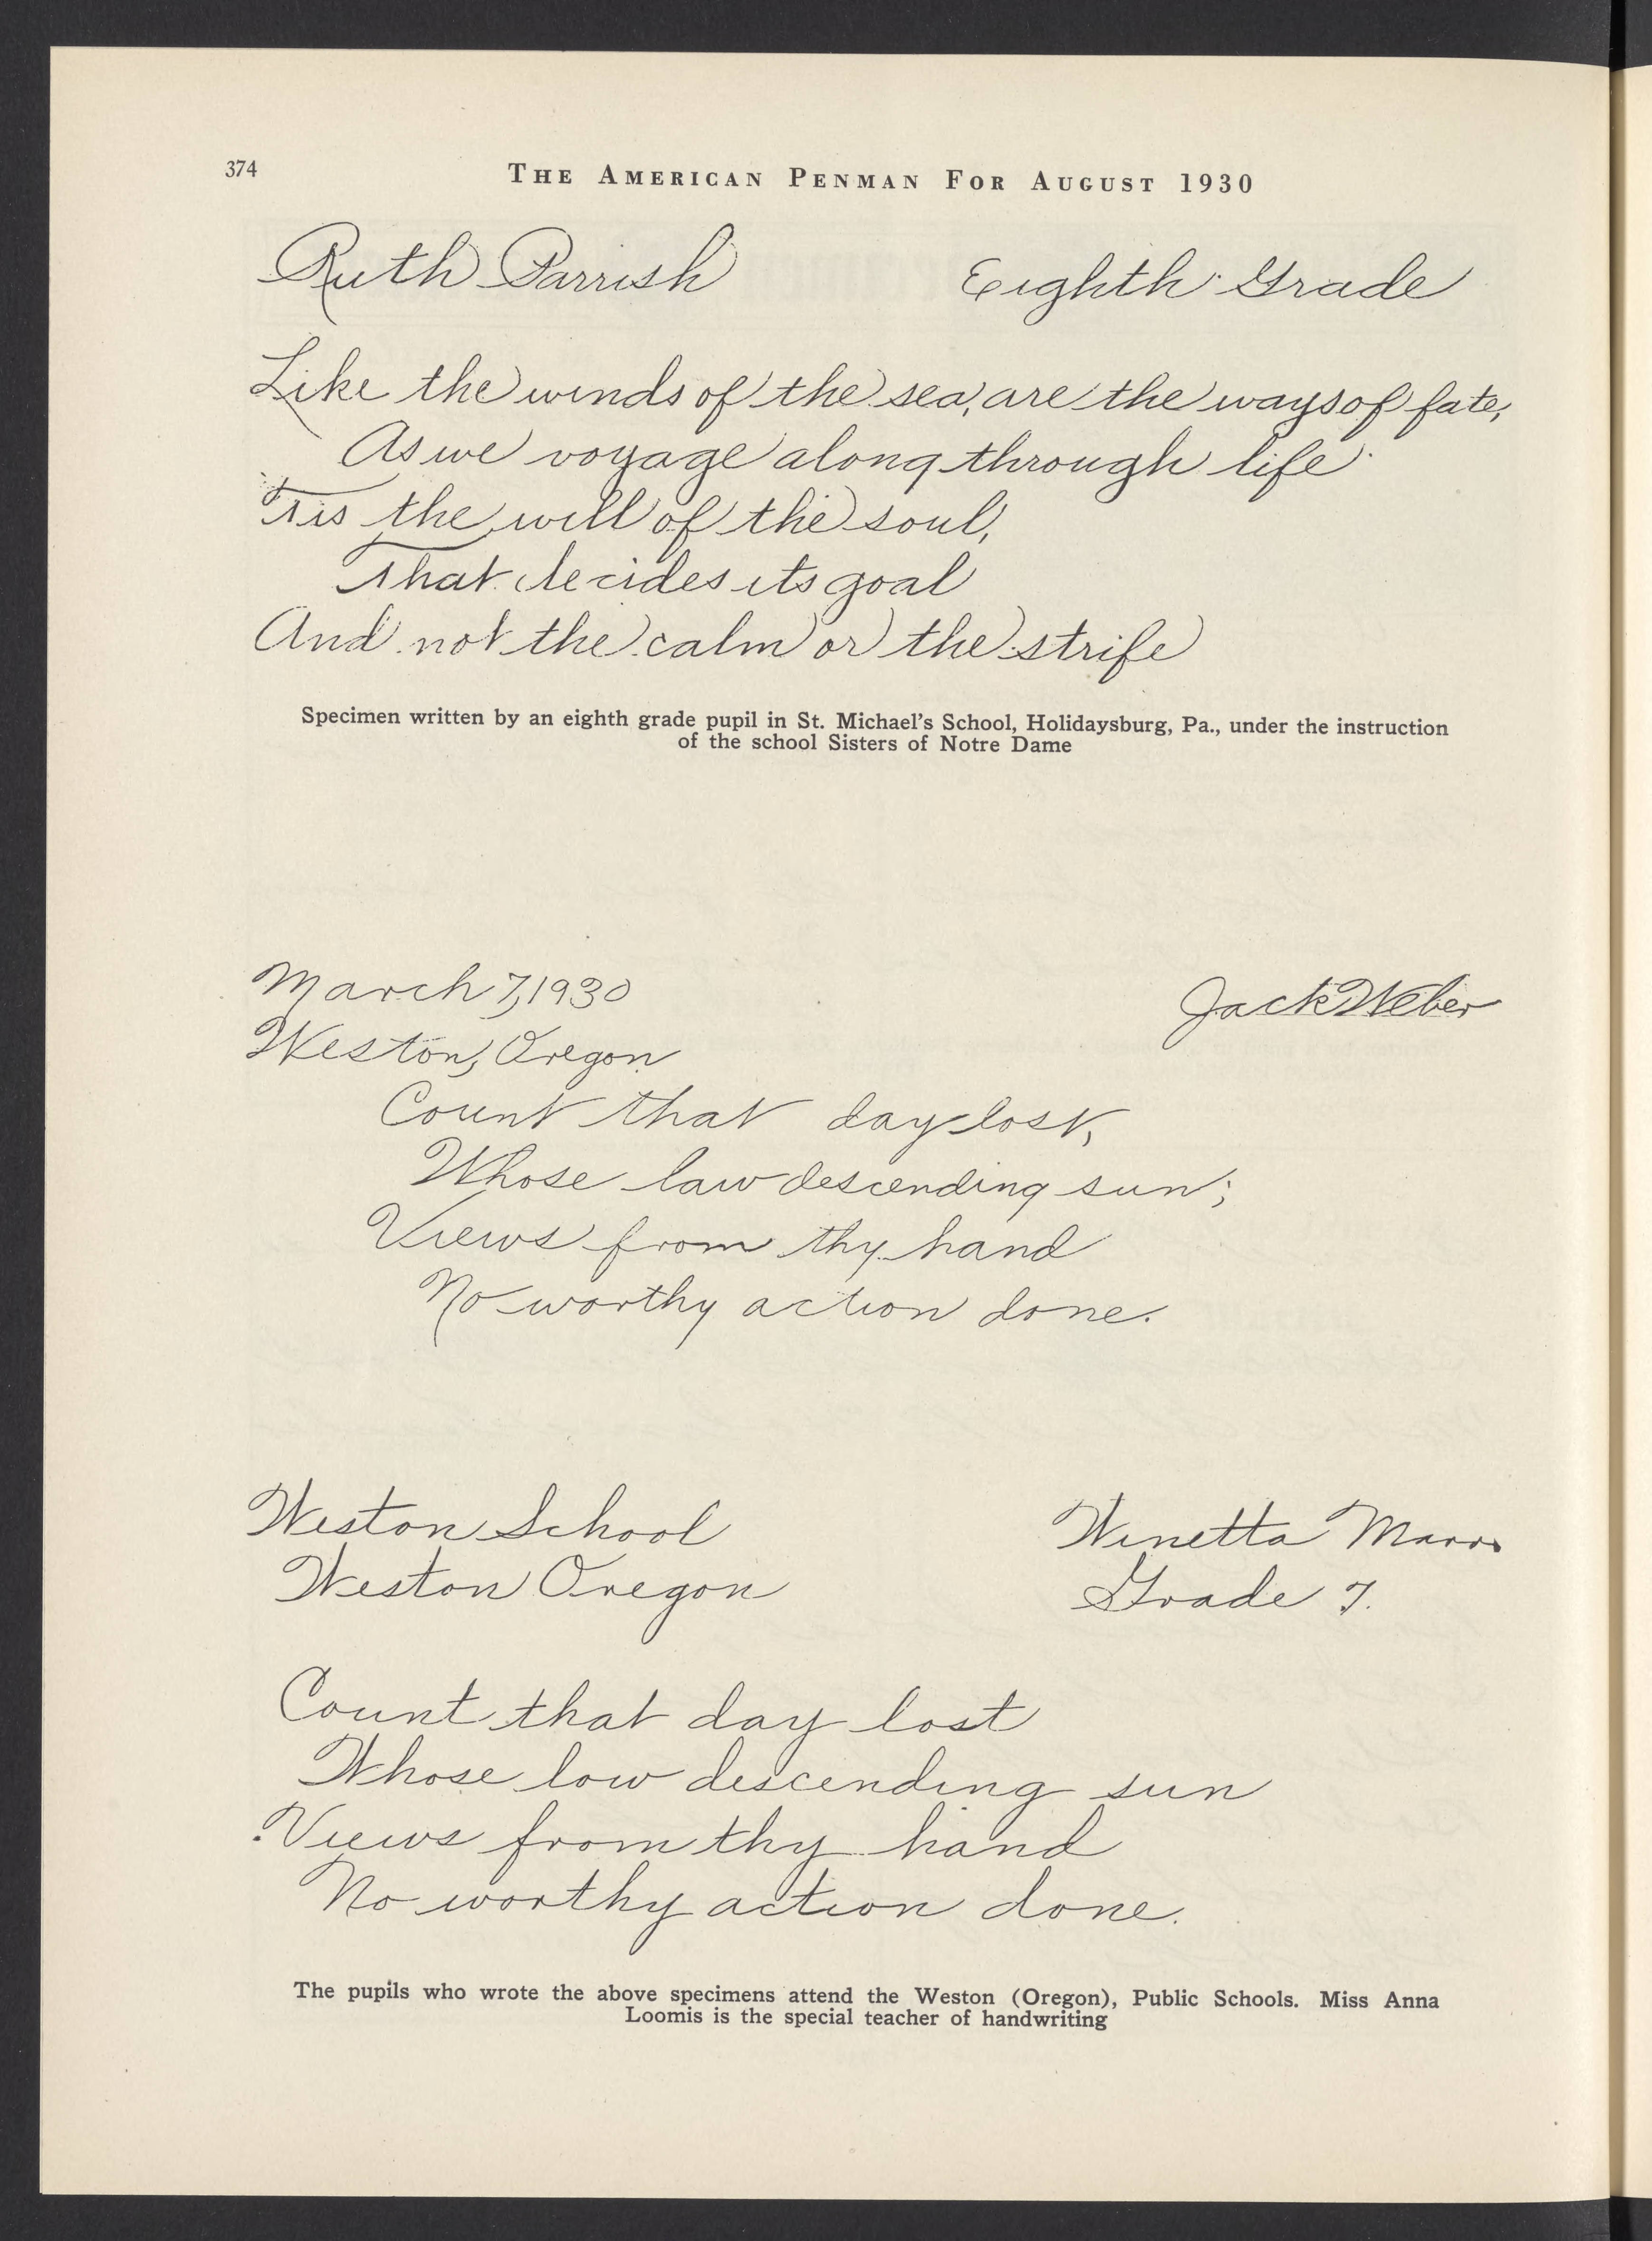 374
THE AMERICAN PENMAN FOR AUGUST 1930
Ruth Parrish Eighth Grade
Like the winds of the sea, are the ways of fate,
As we voyage along through life
'Tis the will of the soul,
That decides its goal
And not the calm or the strife
Specimen written by an eighth grade pupil in St. Michael's School, Holidaysburg, Pa., under the instruction
of the school Sisters of Notre Dame
March 7, 1930 Jack Weber
Weston, Oregon
Count that day lost,
Whose law descending sun;
Views from thy hand
No worthy action done.
Weston School Winetta Marr
Weston Oregon Grade 7.
Count that day lost
Whose low descending sun
Views from thy hand
No worthy action done.
The pupils who wrote the above specimens attend the Weston (Oregon), Public Schools. Miss Anna
Loomis is the special teacher of handwriting